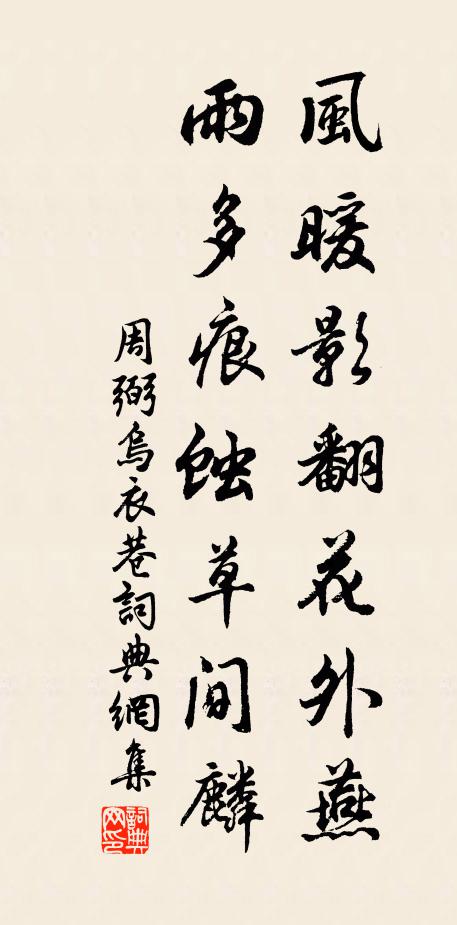 風暖影翻花外燕
雨多痕蝕草間麟
周弼烏衣巷詞典網集
詞典網印